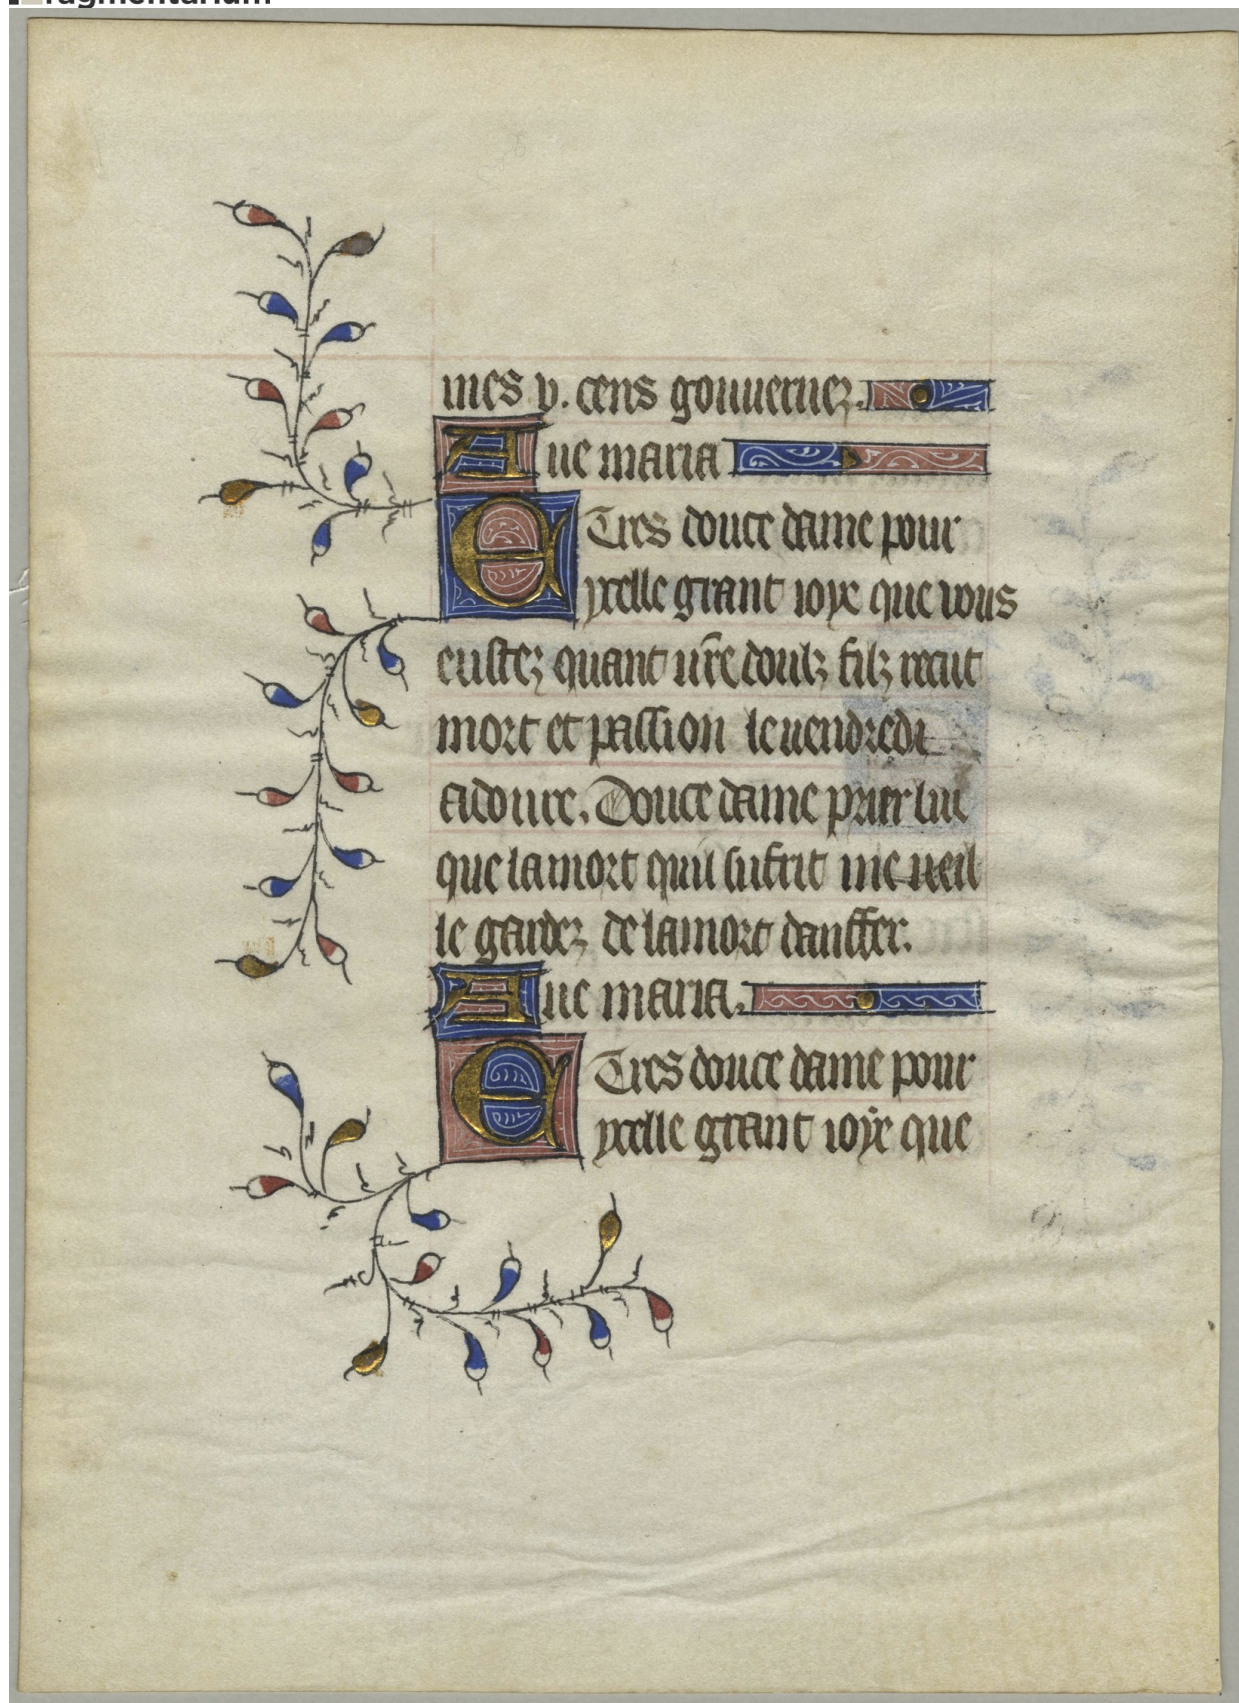 ragmentarium
mes v. cens gouuernez.
Aue maria
E Tres douce dame pour
ycelle grant ioye que vous
eustez quant vr̄e doulz filz recut
mort et passion le uendredi
adoure. Douce dame prier lui
que la mort quil sufrit me ueil
le gardez de la mort danffer.
Aue maria.
E Tres douce dame pour
ycelle grant ioye que